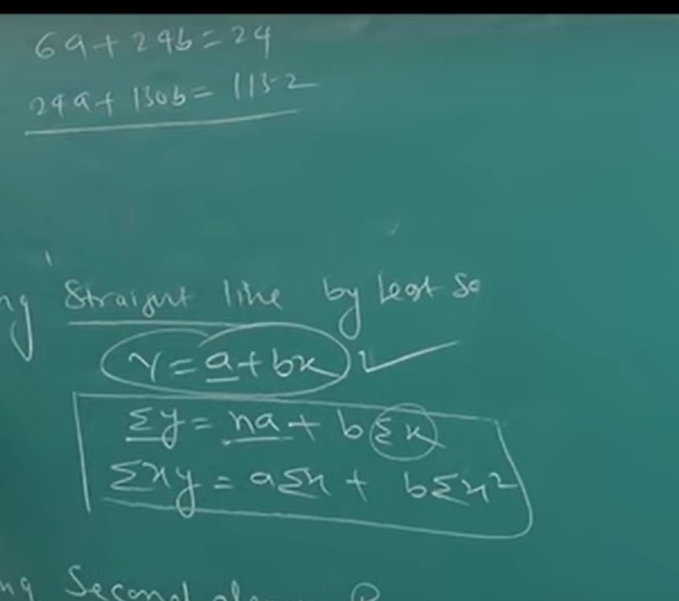 6a+24b=24
24a+130b= 113.2
ng Straight line by least Sq
Y=a+bx
Σy=na+bΣx
Σxy=aΣx+ bΣx²
ng Second